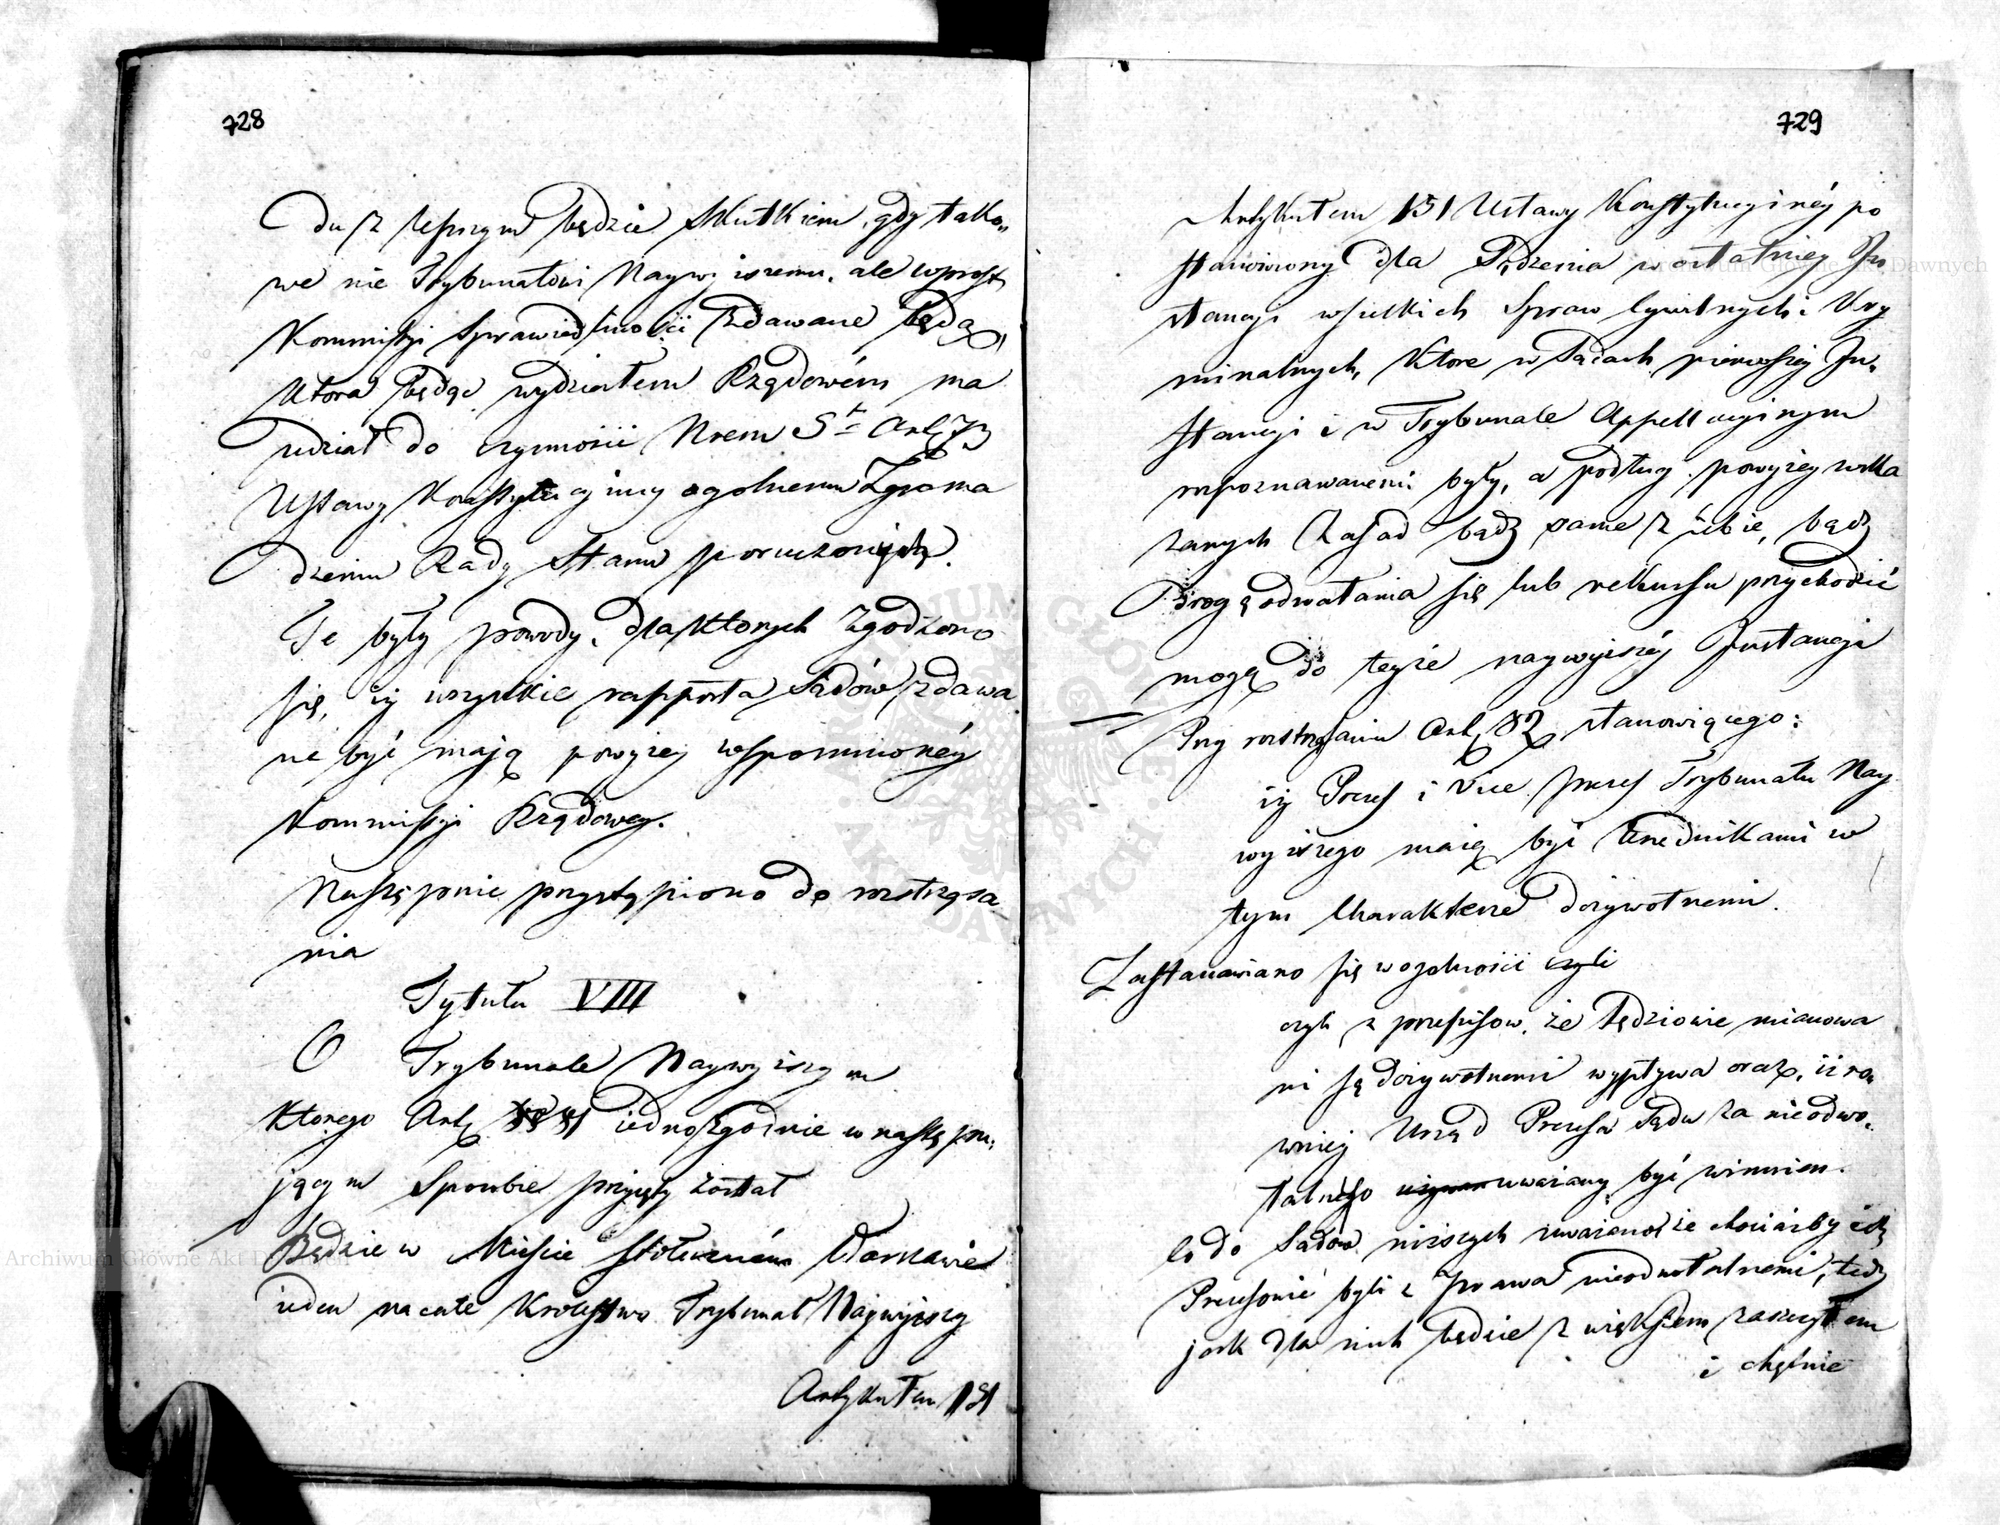 728
du z lepszym będzie skutkiem, gdy tako„
we nie Trybunałowi Naywyiszemu, ale wprost
Kommissyi Sprawiedliwości zdawane będą,
która będąc wydziałem Rządowém ma
udział do czynności Nrem 5t Art 73
Ustawy Konstytucyiney ogolnemu Zgroma
dzeniu Rady Stanu poruczonych.
Te były powody, dla których zgodzono
się, iż wszystkie rapporta Sądów zdawa
ne być mają powyżey wspomnionéy
Kommissyi Rządowey.
Następnie przystąpiono do roztrząsa
nia
Tytułu VIII
O Trybunale Naywyiszym
którego Art 81 iednozgodnie w nastę pu„
jącym Sposobie przyięty został
Będzie w Mieście Stołeczném Warszawie
ieden na całe Krolestwo Trybunał Naywyiszy
Artykułem 151
729
Artykułem 151 Ustawy Konstytucyinéy po
stanowiony dla Sądzenia w ostatniey In
stancyi wszelkich Spraw Cywilnych i Kry
minalnych, które w Sądach pierwszéy In„
stancyi i w Trybunale Appellacyinym
rozpoznawanemi były, a podług powyżey wska
zanych Zasad bądź same z siebie, bądź
drogą odwołania się lub rekursu przychodzić
mogą do teyże naywyiszéy Instancyi
Przy roztrząsaniu Art 82 stanowiącego:
iż Prezes i Vice Prezes Trybunału Nay
wyiszego maią być Urzędnikami w
tym Charakterze dożywotnemi.
Zastanawiano się w ogolności czyli
czyli z przepisow, że Sędziowie mianowa
ni są dożywotnemi wypływa oraz, iż ró„
wniéż Urząd Prezesa Sądu za nieodwo„
łalnego uważany być winnien.
Co do Sądów niższych uważano że chociażby ich
Prezesowie byli z prawa nieodwołalnemi, tedy
jak dla nich będzie z większem zaszczytem
i chętnie
Archiwum Główne Akt Dawnych